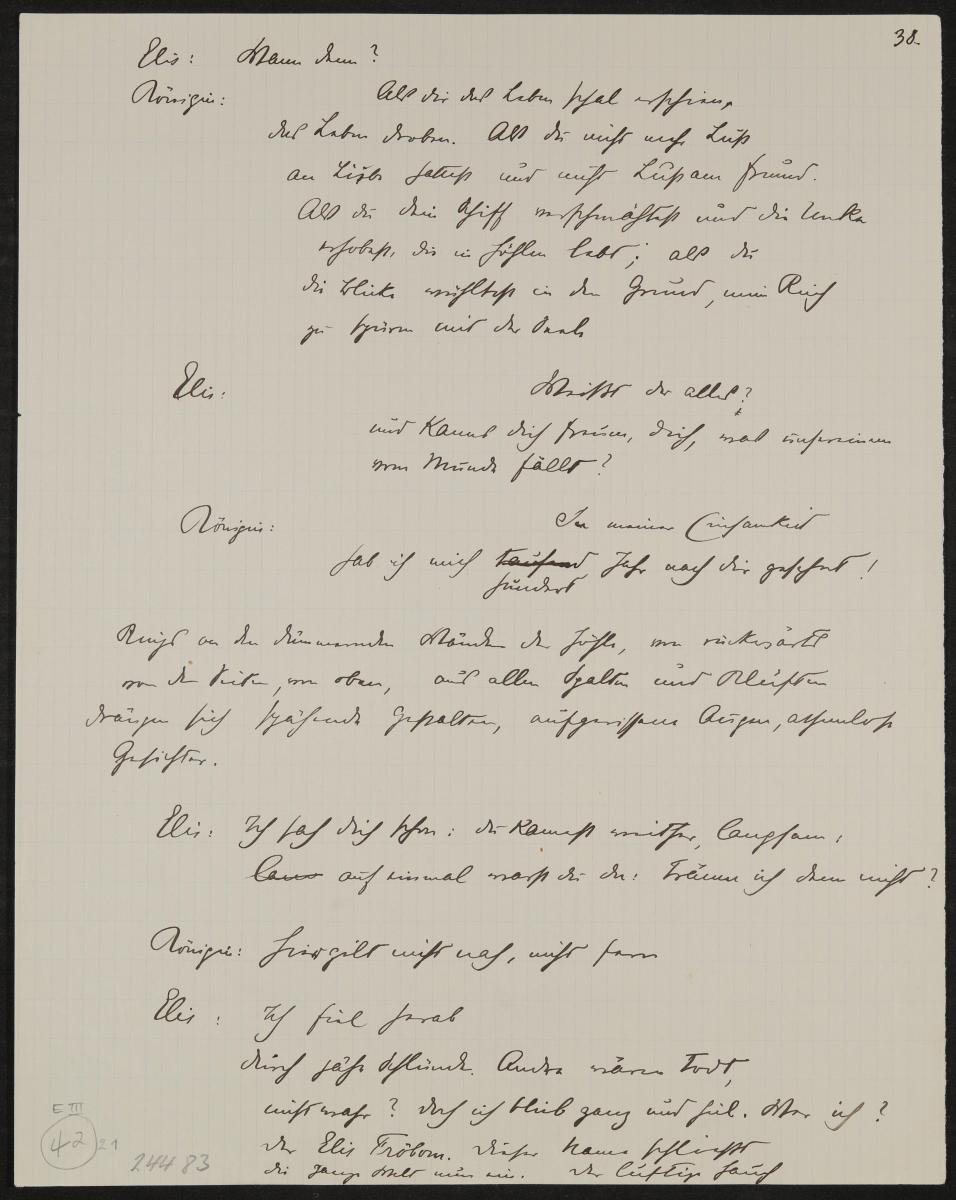 38.
Elis: Wann denn?
Königin: Als dir das Leben schal erschien,
das Leben droben. Als du nicht mehr Lust
an Liebe hattest und nicht Lust am Freund.
Als du dein Schiff verschmähtest und die Unke
erhobest, die in Höhlen lebt; als du
die Blicke wühltest in den Grund, mein Reich
zu spüren mit der Seele
Elis: Weißt du alles?
und kannst dich freuen, dich, was unsereinem
vom Munde fällt?
Königin: In meiner Einsamkeit
hab ich mich tausend Jahr nach dir gesehnt!
hundert
Rings an den dämmernden Wänden der Höhle, von rückwärts
von den Seiten, von oben, aus allen Spalten und Klüften
drängen sich spähende Gestalten, aufgerissene Augen, athemlose
Gesichter.
Elis: Ich sah dich schon: du kamest weither, langsam,
auf einmal warst du da: träum ich denn nicht?
Königin: Hier gilt nicht nah, nicht fern
Elis: Ich fiel herab
durch jähe Schlünde. Andre wären todt,
nicht wahr? Doch ich blieb ganz und heil. Wer ich?
der Elis Fröbom. Dieser Name schließt
die ganze Welt nun ein. Der luftige Hauch
E III
42
21
24483